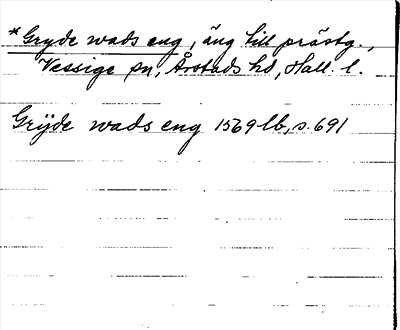 *Gryde wads eng, äng till prästg.,
Vessige sn, Årstads hd, Hall. l.
Grÿde wads eng 1569 lb, s. 691